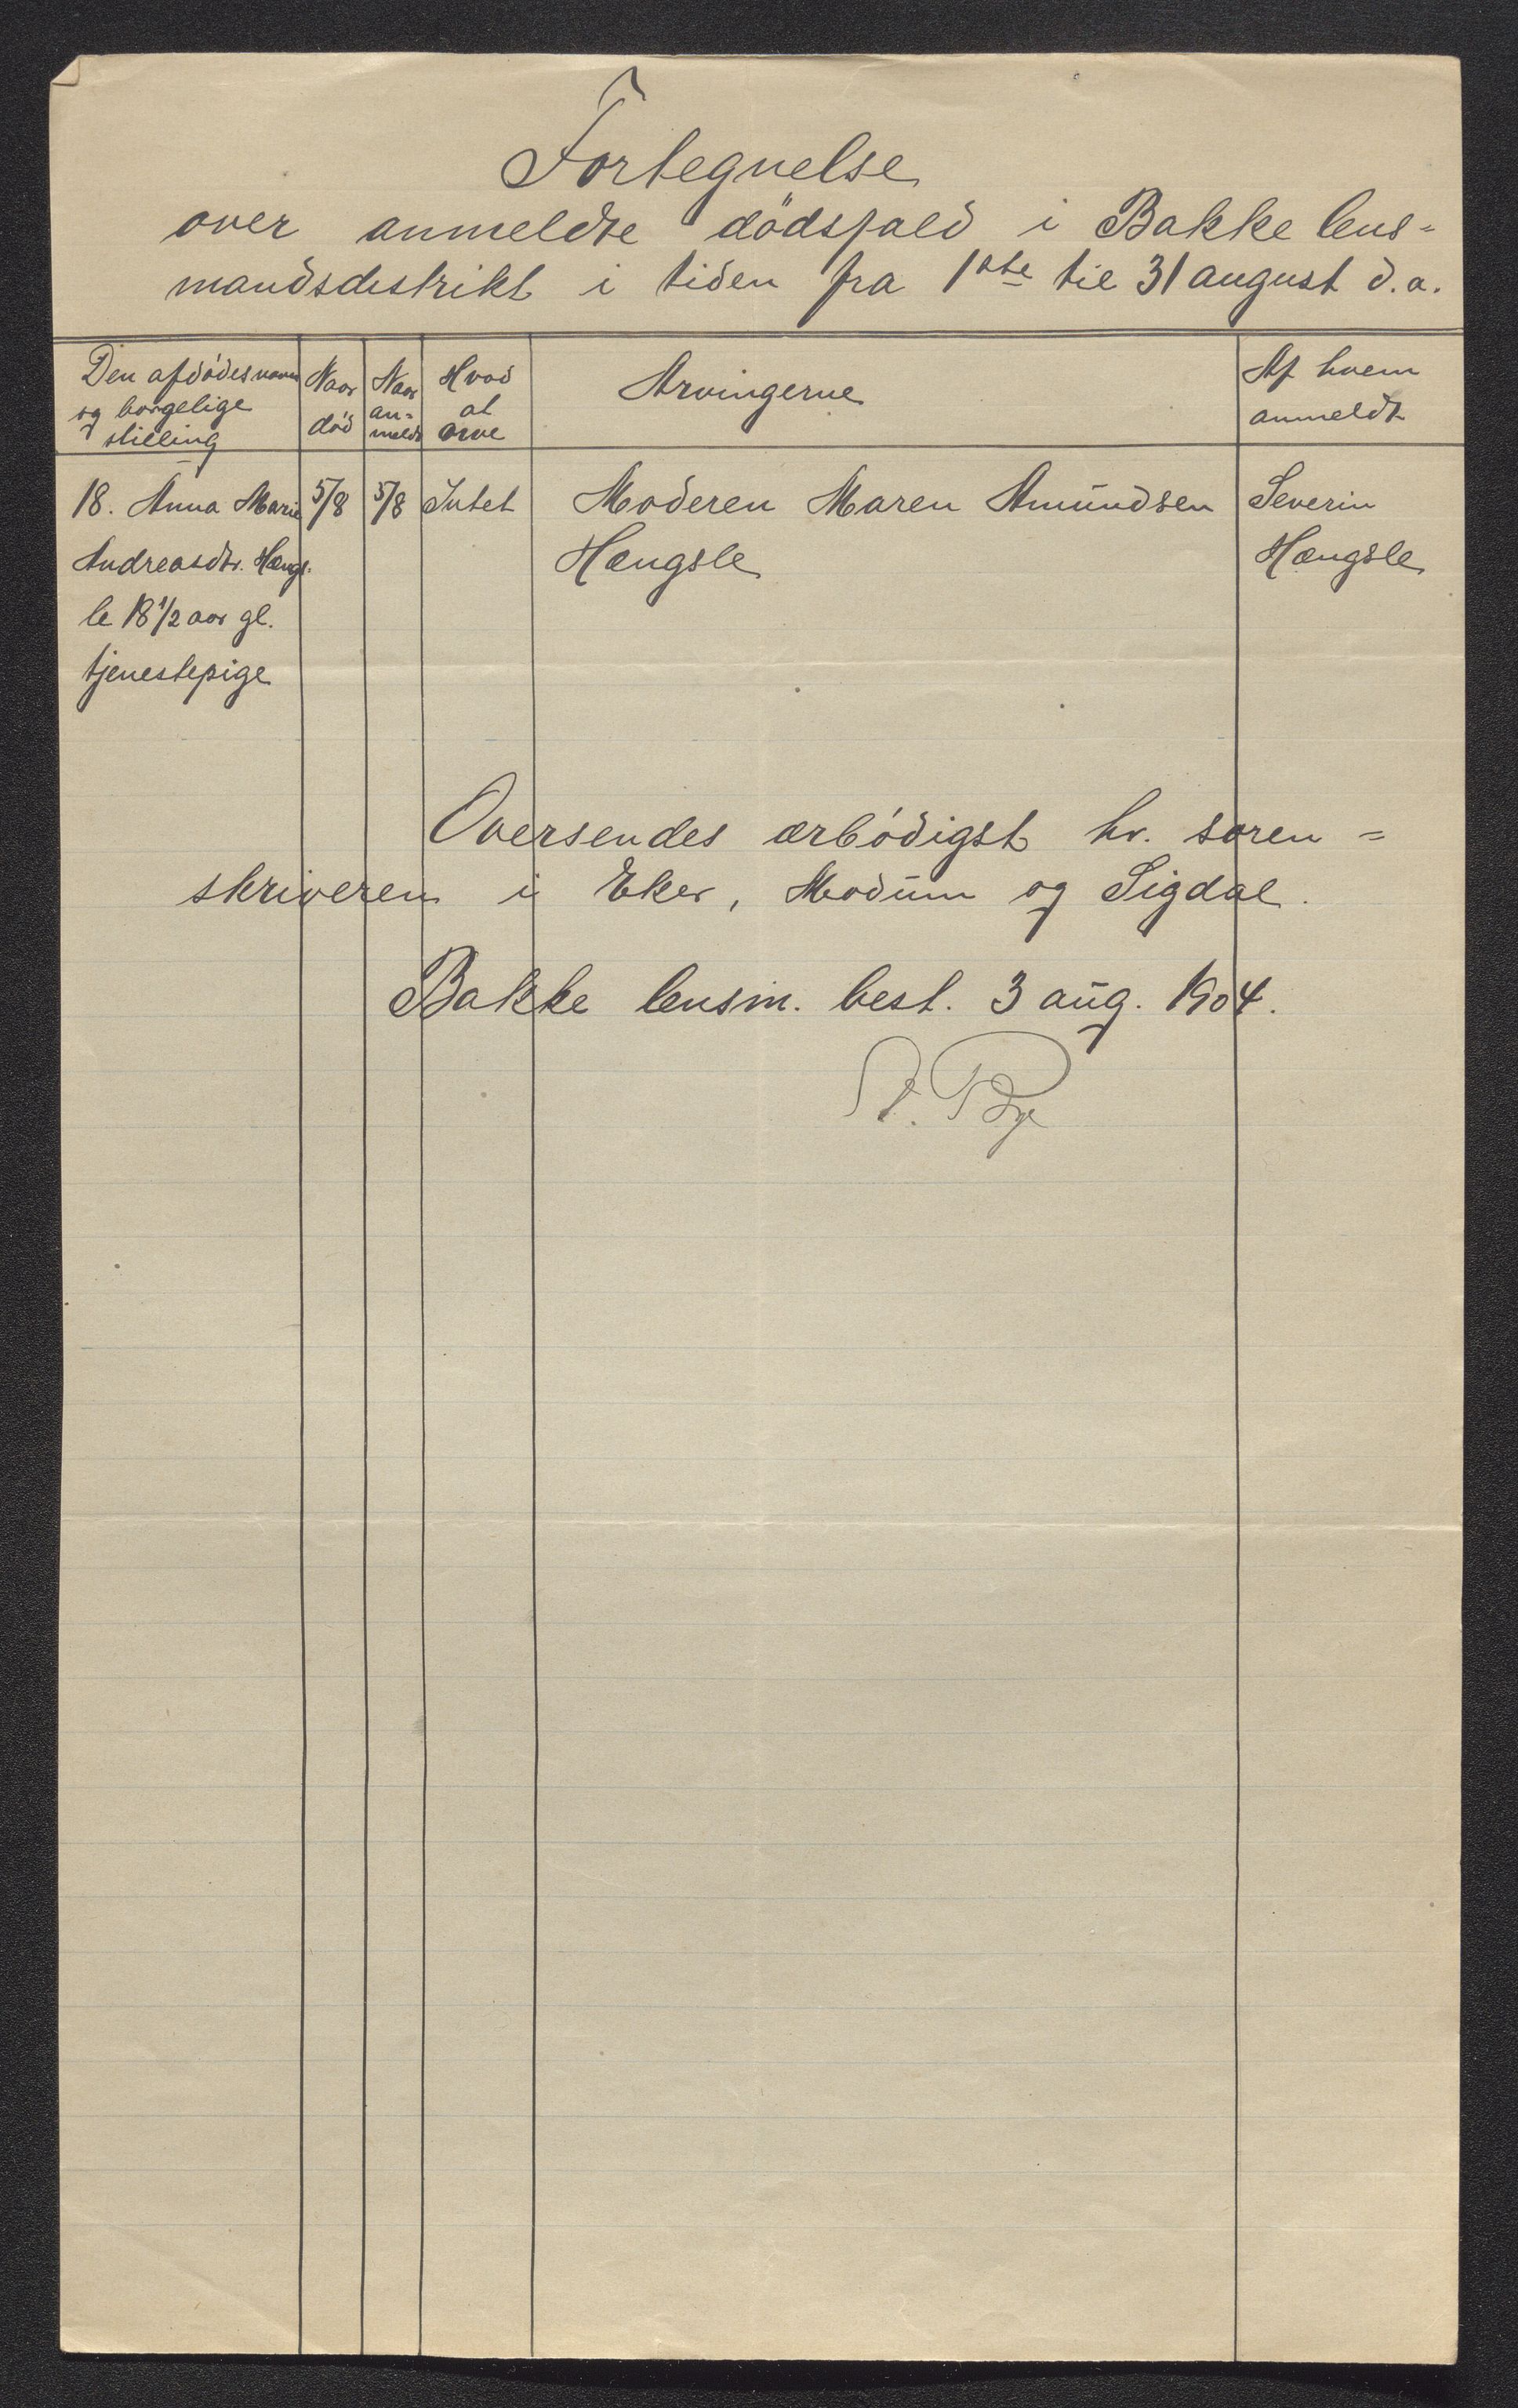 Fortegnelse
over anmeldte dödsfald i Bakke lens=
mandsdistrikt i tiden fra 1ste til 31 august d.a.
Den afdödes navn og borgelige stilling
Naar död
Naar an=meldt
Hvad at arve
Arvingerne
Af hvem anmeldt
18. Anna Marie 5/8 5/8 Intet Moderen Maren Amundsen Severin
Andreasdtr. Hængs- Hængsle Hængsle
le 18 1/2 aar gl.
tjenestepige
Oversendes ærbödigst hr. soren=
skriveren i Eker, Modum og Sigdal.
Bakke lensm. best. 3 aug. 1904.
Bye